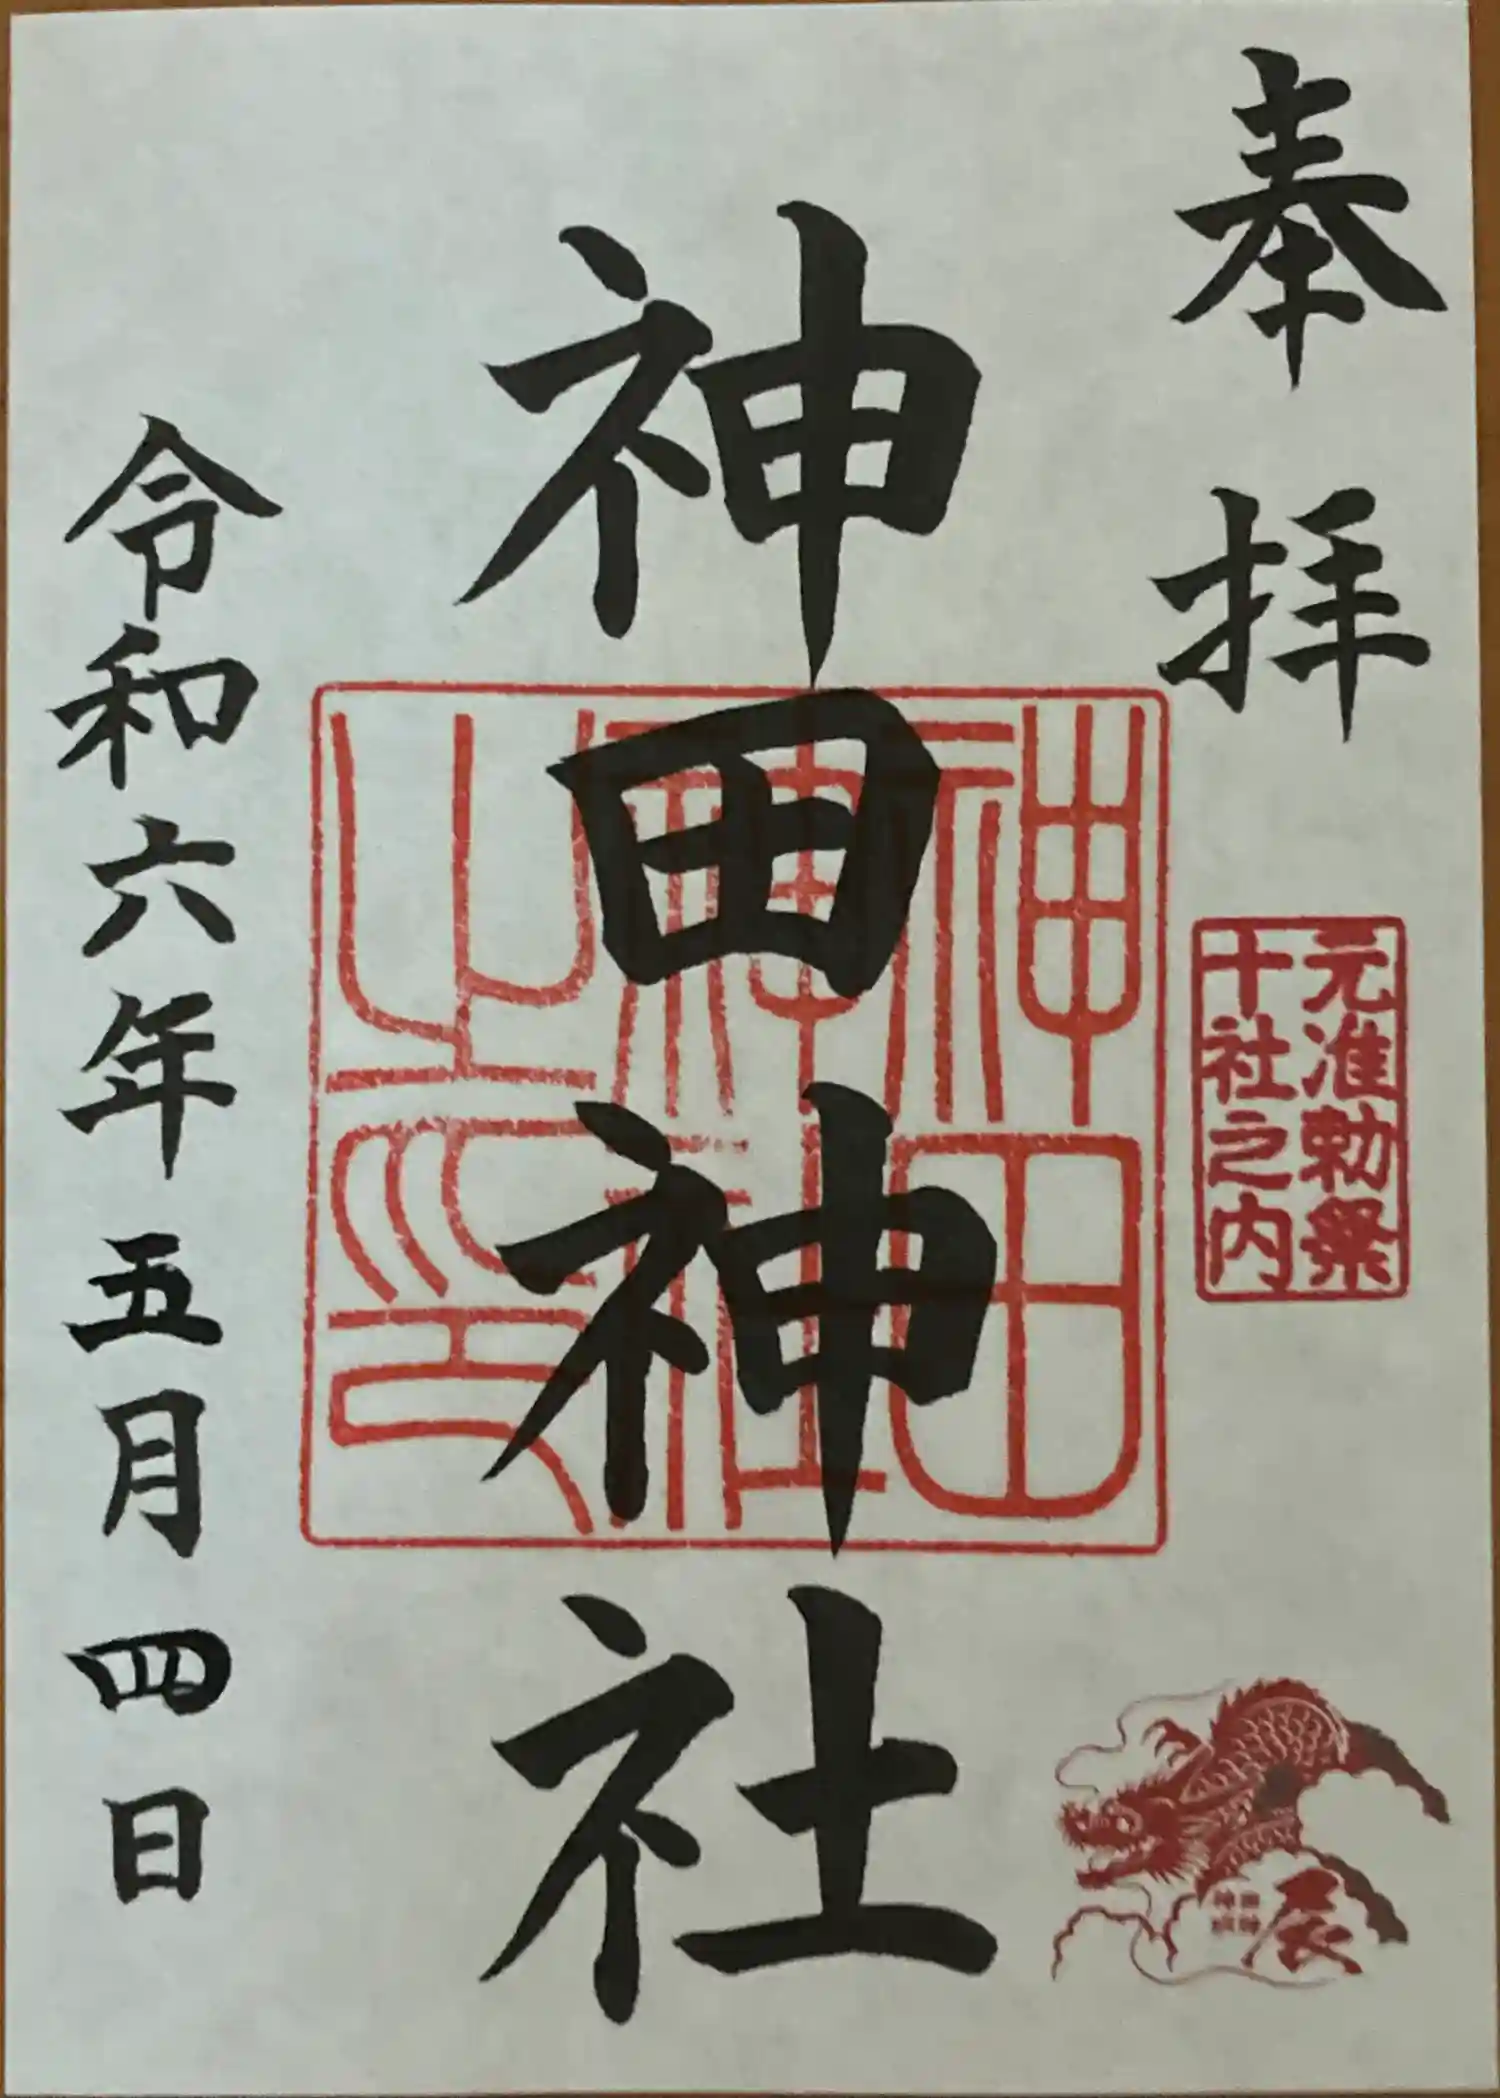 奉拝
元准勅祭
十社之内
辰
神田神社
神田
神社
之印
令和六年五月四日